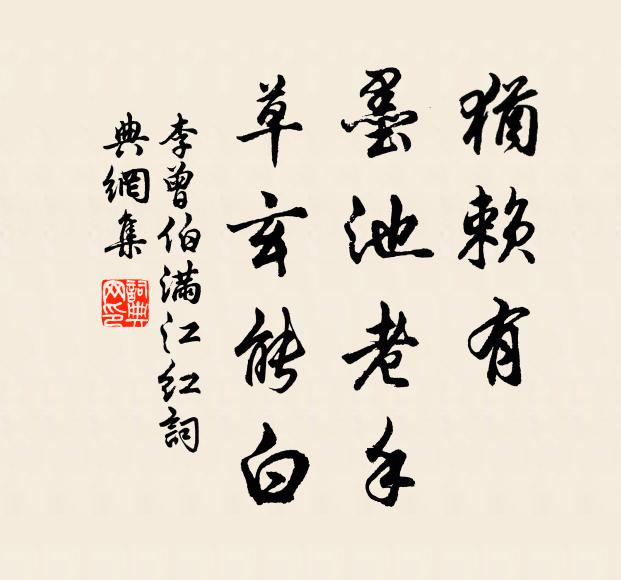 猶賴有
墨池老手
草玄能白
李曾伯滿江红詞
典網集
詞典
网印